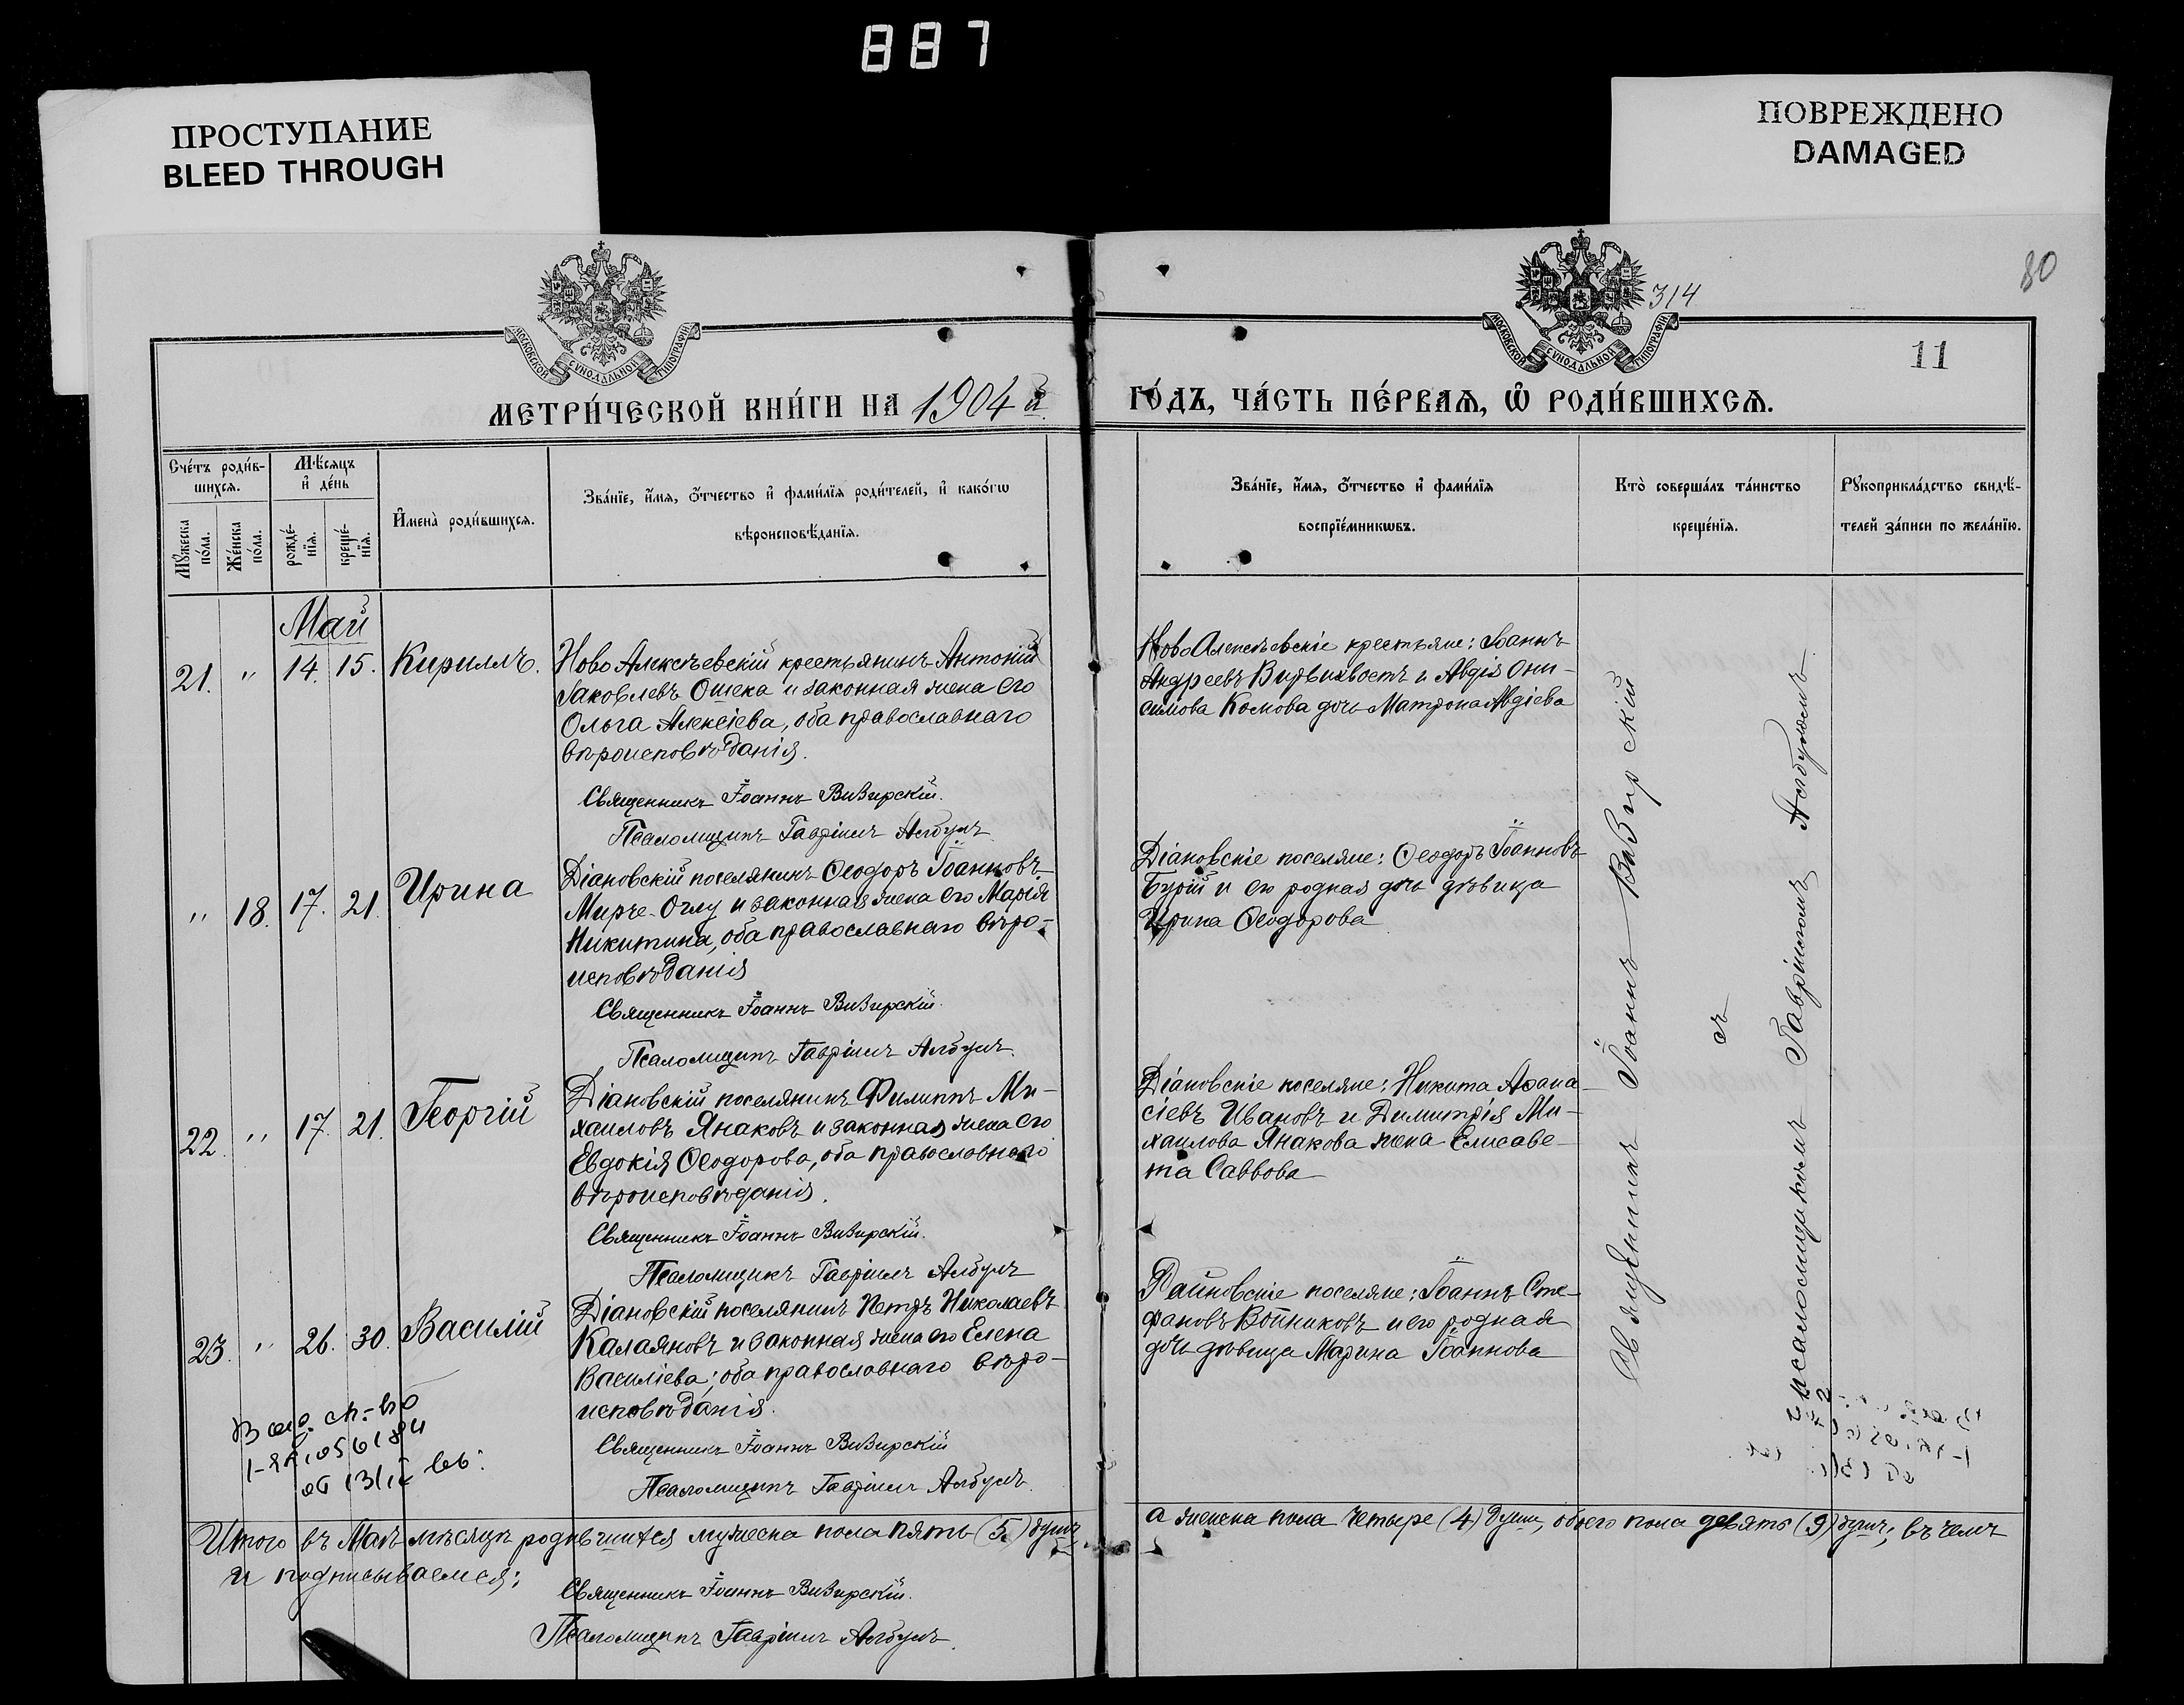 887
ПРОСТУПАНИЕ
BLEED THROUGH
ПОВРЕЖДЕНО
DAMAGED
80
314
11
МОСКОВСКОЙ СУНОДАЛЬНОЙ ТИПОГРАФІИ
МОСКОВСКОЙ СУНОДАЛЬНОЙ ТИПОГРАФІИ
МЕТРИ́ЧЕСКОЙ КНИ́ГИ НА 1904й
ГО́ДЪ, ЧА́СТЬ ПЕ́РВАѦ, Ѡ҆ РОДИ́ВШИХСѦ.
Сче́тъ роди́в-
шихсѧ.
Мѣ́сѧцъ
и҆ де́нь
Мꙋ́жеска
по́ла.
Же́нска
по́ла.
рожде́-
нїѧ.
креще́-
нїѧ.
И҆мена̀ роди́вшихсѧ.
Зва́нїе, и҆́мѧ, ѻ҆́тчество и҆ фами́лїѧ роди́телей, и҆ како́гѡ
вѣроисповѣ́данїѧ.
Зва́нїе, и҆́мѧ, ѻ҆́тчество и҆ фами́лїѧ
воспрїе́мникѡвъ.
Кто̀ соверша́лъ та́инство
креще́нїѧ.
Рꙋкоприкла́дство свидѣ́-
телей за́писи по жела́нїю.
Май
21. " 14. 15. Кириллъ.
Ново Алексѣевскій крестьянинъ Антоній
Яковлевъ Ошека и законная жена его
Ольга Алексіева, оба православнаго
вѣроисповѣданія.
Священникъ Іоаннъ Визирскій.
Псаломщикъ Гавріилъ Албулъ.
Ново Алексѣевскіе крестьяне: Іоаннъ
Андреевъ Вирвихвостъ и Авдія Они-
симова Комова дочь Матрона Авдіева
" 18. 17. 21. Ирина
Діановскій поселянинъ Ѳеодоръ Іоанновъ
Мирче-Оглу и законная жена его Марія
Никитина, оба православнаго вѣро-
исповѣданія
Священникъ Іоаннъ Визирскій.
Псаломщикъ Гавріилъ Албулъ.
Діановскіе поселяне: Ѳеодоръ Іоанновъ
Бурій и его родная дочь дѣвица
Ирина Ѳеодорова
22. " 17. 21. Георгій
Діановскій поселянинъ Филиппъ Ми-
хаиловъ Янаковъ и законная жена его
Евдокія Ѳеодорова, оба православнаго
вѣроисповѣданія.
Священникъ Іоаннъ Визирскій.
Псаломщикъ Гавріилъ Албулъ
Діановскіе поселяне: Никита Аѳана-
сіевъ Ивановъ и Димитрія Ми-
хаилова Янакова жена Елисаве-
та Саввова
23. " 26. 30. Василій
Діановскій поселянинъ Петръ Николаевъ
Калаяновъ и законная жена его Елена
Василіева; оба православнаго вѣро-
исповѣданія.
Священникъ Іоаннъ Визирскій
Псаломщикъ Гавріилъ Албулъ.
поселяне: Іоаннъ Сте-
фановъ Войниковъ и его родная
дочь дѣвица Марина Іоаннова
Священникъ Іоаннъ Визирскій
съ
псаломщикомъ Гавріиломъ Албуломъ
Итого въ Маѣ мѣсяцѣ родившихся мужеска пола пять (5) душъ,
а женска пола четыре (4) души, обоего пола девять (9) душъ; въ чемъ
и подписываемся:
Священникъ Іоаннъ Визирскій.
Псаломщикъ Гавріилъ Албулъ.